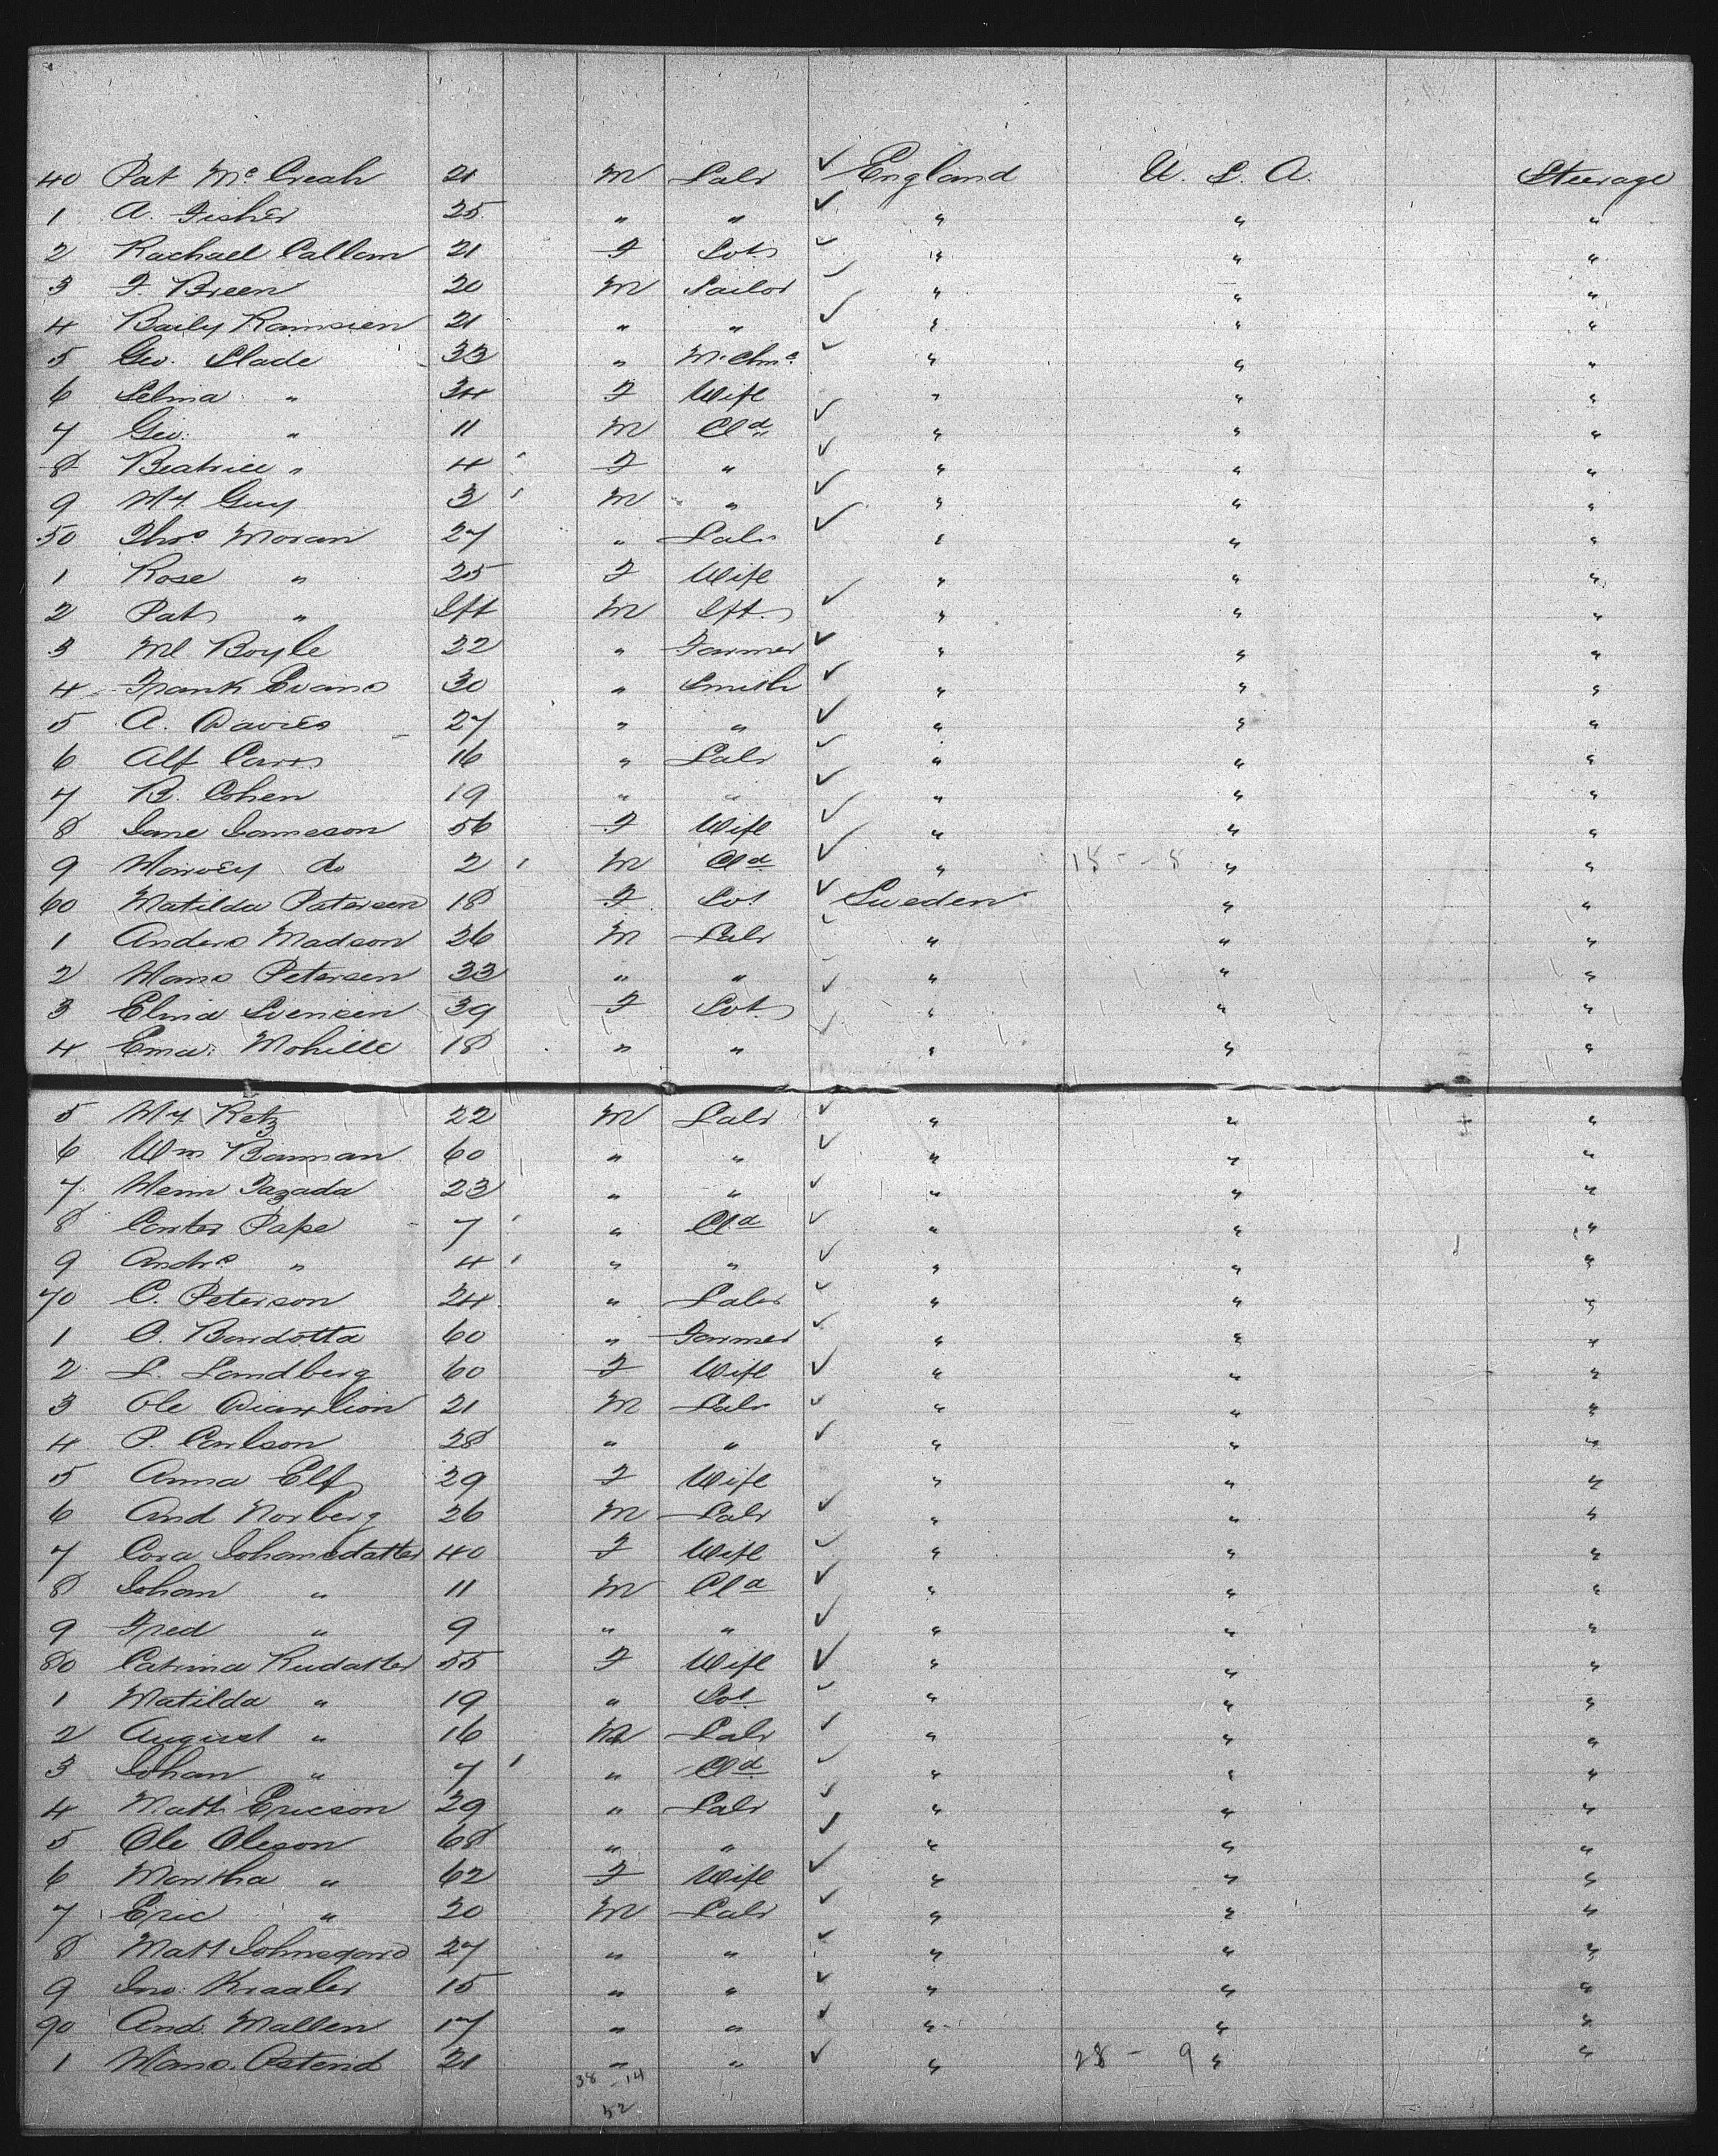 40 Pat Mc Creah 21 M Labr ✓ England U. S. A. Steerage
1 A. Fisher 25 " " ✓ " " "
2 Rachael Callom 21 F Sptr ✓ " " "
3 F. Breen 20 M Sailor ✓ " " "
4 Baily Ramsien 21 " " ✓ " " "
5 Geo. Slade 33 " Mchnc ✓ " " "
6 Selma " 34 F Wife " " "
7 Geo. " 11 M Cld ✓ " " "
8 Beatrice " 4 F " ✓ " " "
9 Hy. Guy 3 M " ✓ " " "
50 Thos Moran 27 " Labr ✓ " " "
1 Rose " 25 F Wife " " "
2 Pat " Ift M Ift. ✓ " " "
3 Ml Boyle 22 " Farmer ✓ " " "
4 Frank Evans 30 " Smith ✓ " " "
5 A. Davies 27 " " ✓ " " "
6 Alf 16 " Labr ✓ " " "
7 B. Cohen 19 " " ✓ " " "
8 Jane Jameson 56 F Wife ✓ " " "
9 Harvey do 2 M Cld ✓ " 15 - - 5 " "
60 Matilda Patersen 18 F Spt ✓ Sweden " "
1 Anders Madson 26 M Labr " " "
2 Hans Petersen 33 " " ✓ " " "
3 Elina Svensen 39 F Spt " " "
4 Ema. Mohille 18 " " ✓ " " "
5 Hy. Retz 22 M Labr ✓ " " "
6 Wm Barman 60 " " ✓ " " "
7 Henn Tazada 23 " " ✓ " " "
8 Pape 7 " Cld ✓ " " "
9 Andrs " 4 " " ✓ " " "
70 C. Peterson 24 " Labr ✓ " " "
1 O. Bardotta 60 " Farmer ✓ " " "
2 L. Landberg 60 F Wife ✓ " " "
3 Ole 21 M Labr ✓ " " "
4 P. Carlson 28 " " ✓ " " "
5 Anna Elf 29 F Wife " " "
6 And Norberg 26 M Labr ✓ " " "
7 Cora Johansdatter 40 F Wife ✓ " " "
8 Johan " 11 M Cld ✓ " " "
9 Fred " 9 " " ✓ " " "
80 Catrina Rudatter 55 F Wife ✓ " " "
1 Matilda " 19 " Spt ✓ " " "
2 August " 16 M Labr ✓ " " "
3 Johan " 7 " Cld ✓ " " "
4 Matt Ericson 29 " Labr ✓ " " "
5 Ole Oleson 68 " " ✓ " " "
6 Martha " 62 F Wife ✓ " " "
7 Eric " 20 M Labr ✓ " " "
8 Matt Johnsgard 27 " " ✓ " " "
9 Jno. Kraaler 15 " " ✓ " " "
90 And. Mallen 17 " " ✓ " " "
1 Hans. Ostend 21 " " ✓ " 28 - 9 " "
38 - 14
52